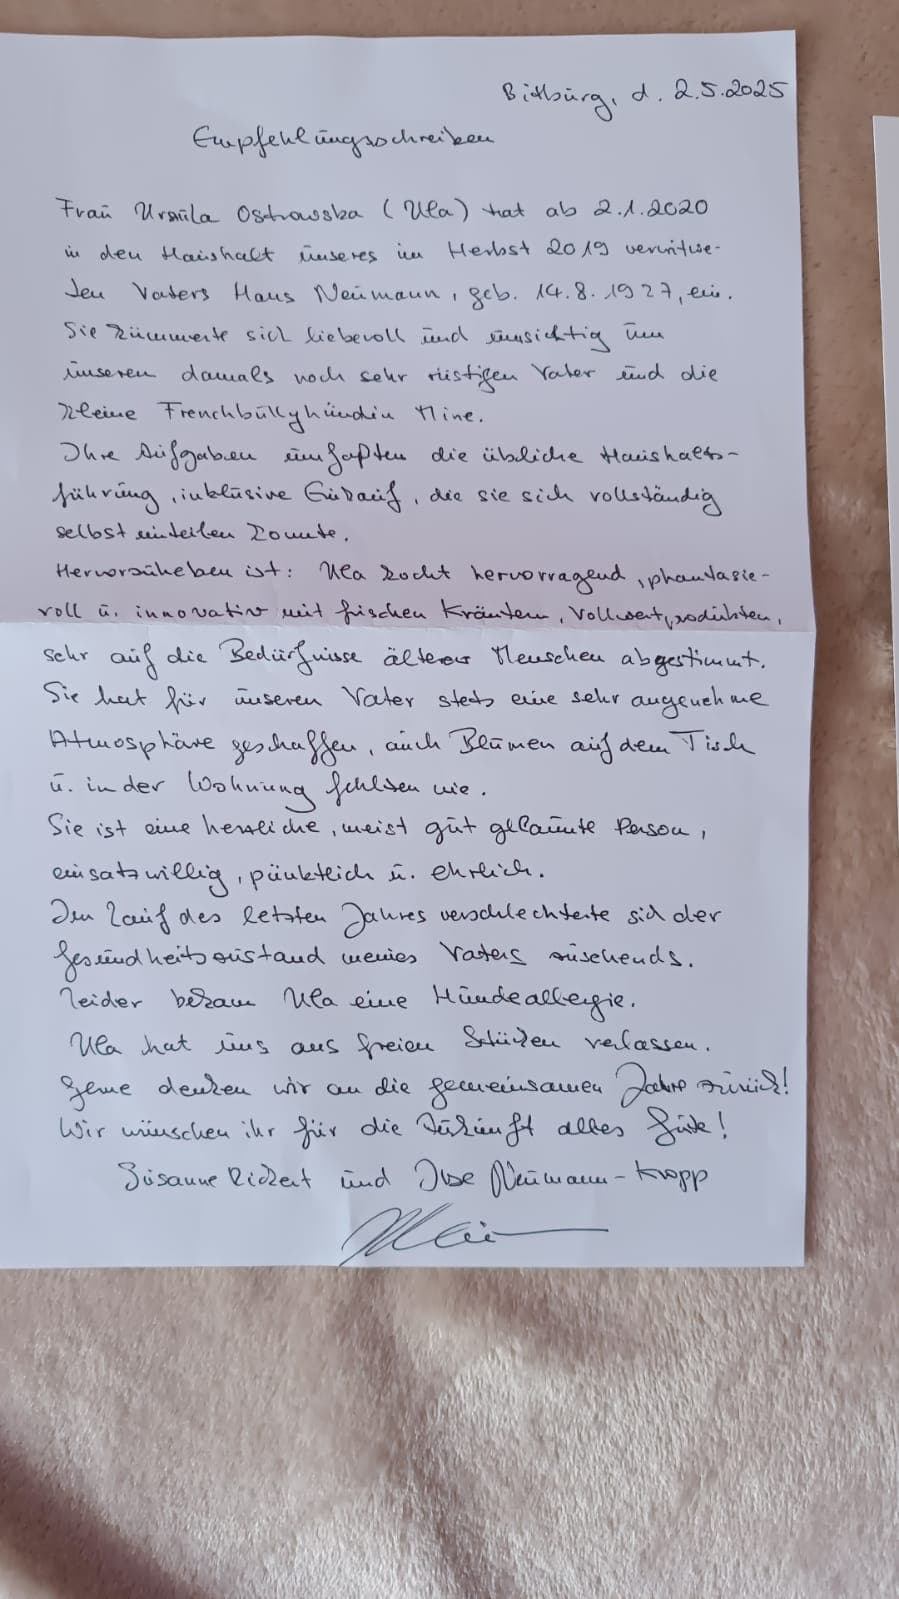 Bitburg, d. 2.5.2025
Empfehlungsschreiben
Frau Ursula Ostrowska (Ula) hat ab 2.1.2020
in den Haushalt unseres im Herbst 2019 verwitwe-
ten Vaters Hans Neumann, geb. 14.8.1927, ein.
Sie kümmerte sich liebevoll und umsichtig um
unseren damals noch sehr rüstigen Vater und die
kleine Frenchbullyhündin Mine.
Ihre Aufgaben umfaßten die übliche Haushalts-
führung, inklusive Einkauf, die sie sich vollständig
selbst einteilen konnte.
Hervorzuheben ist: Ula kocht hervorragend, phantasie-
voll u. innovativ mit frischen Kräutern, Vollwertprodukten,
sehr auf die Bedürfnisse älterer Menschen abgestimmt.
Sie hat für unseren Vater stets eine sehr angenehme
Atmosphäre geschaffen, auch Blumen auf dem Tisch
u. in der Wohnung fehlten nie.
Sie ist eine herzliche, meist gut gelaunte Person,
einsatzwillig, pünktlich u. ehrlich.
Im Lauf des letzten Jahres verschlechterte sich der
Gesundheitszustand meines Vaters zusehends.
Leider bekam Ula eine Hundeallergie.
Ula hat uns aus freien Stücken verlassen.
Gerne denken wir an die gemeinsamen Jahre zurück!
Wir wünschen ihr für die Zukunft alles Gute!
Susanne Rickert und Ilse Neumann-Kropp